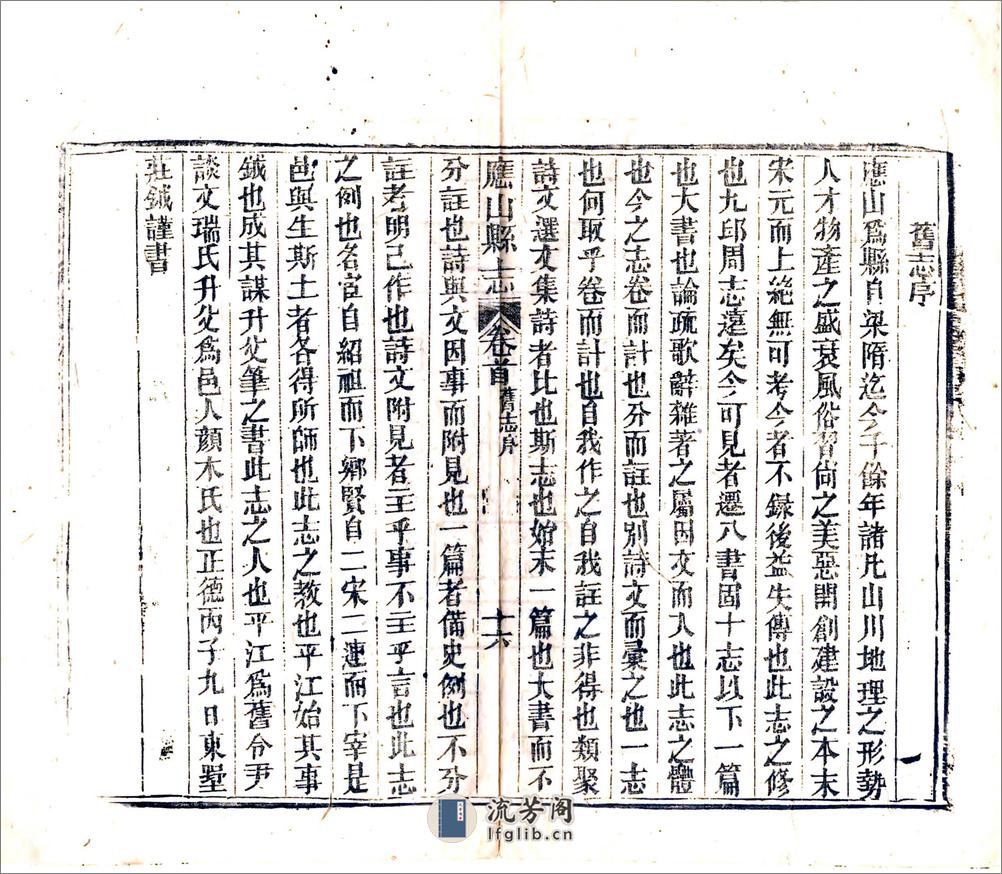 舊志序
應山爲縣自梁隋迄今千餘年諸凡山川地理之形勢
人才物產之盛衰風俗習尙之美惡開創建設之本末
宋元而上絶無可考今者不録後益失傳也此志之修
也九邱周志遠矣今可見者遷八書固十志以下一篇
也大書也論疏歌辭雜著之屬因文而入也此志之體
也今之志卷而計也分而註也别詩文而彙之也一志
也何取乎卷而計也自我作之自我註之非得也類聚
詩文選文集詩者比也斯志也始末一篇也大書而不
應山縣志
卷首
舊志序
十六
分註也詩與文因事而附見也一篇者備史例也不分
註者明己作也詩文附見者主乎事不主乎言也此志
之例也名宦自紹祖而下鄉賢自二宋二連而下宰是
邑與生斯土者各得所師也此志之教也平江始其事
鉞也成其謀升父筆之書此志之人也平江爲舊令尹
談文瑞氏升父爲邑人顔木氏也正德丙子九日東墅
莊鉞謹書
流芳阁
lfglib.cn